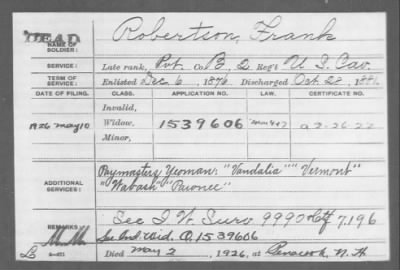 DEAD
NAME OF SOLDIER: Robertson, Frank
SERVICE: Late rank, Pvt. Co. B, 2 Reg't U S Cav.
TERM OF SERVICE: Enlisted Dec 6, 1876 Discharged Oct. 28, 1881
DATE OF FILING. CLASS. APPLICATION NO. LAW. CERTIFICATE NO.
Invalid,
1926 May 10 Widow, 1539606
Minor,
ADDITIONAL SERVICES: Paymasters Yeoman: "Vandalia" "Vermont"
"Wabash" "Pawnee"
See I W Surv 9990 Ctf 7196
REMARKS: See Ind. Wid. O. 1539606
Died May 2, 1926, at Penacook, N. H.